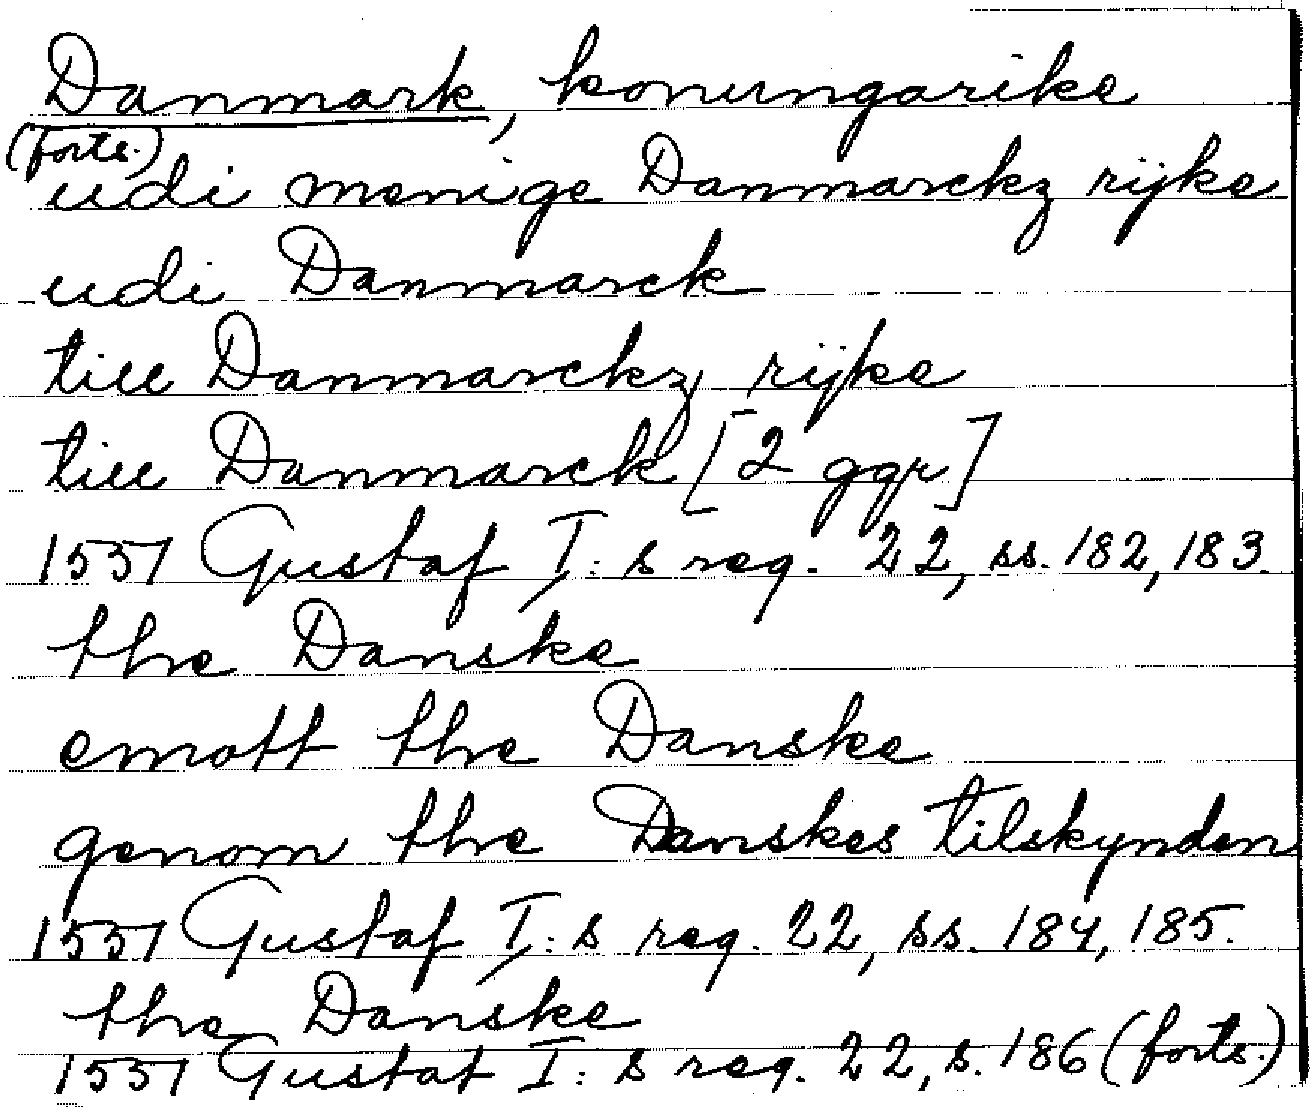 Danmark, konungarike
(forts.)
udi menige Danmarckz rijke
udi Danmarck
till Danmarckz rijke
till Danmarck [2 ggr]
1551 Gustaf I:s reg. 22, ss. 182, 183.
the Danske
emott the Danske
genom the Danskes tilskynden
1551 Gustaf I:s reg. 22, ss. 184, 185.
the Danske
1551 Gustaf I:s reg. 22, s. 186 (forts.)